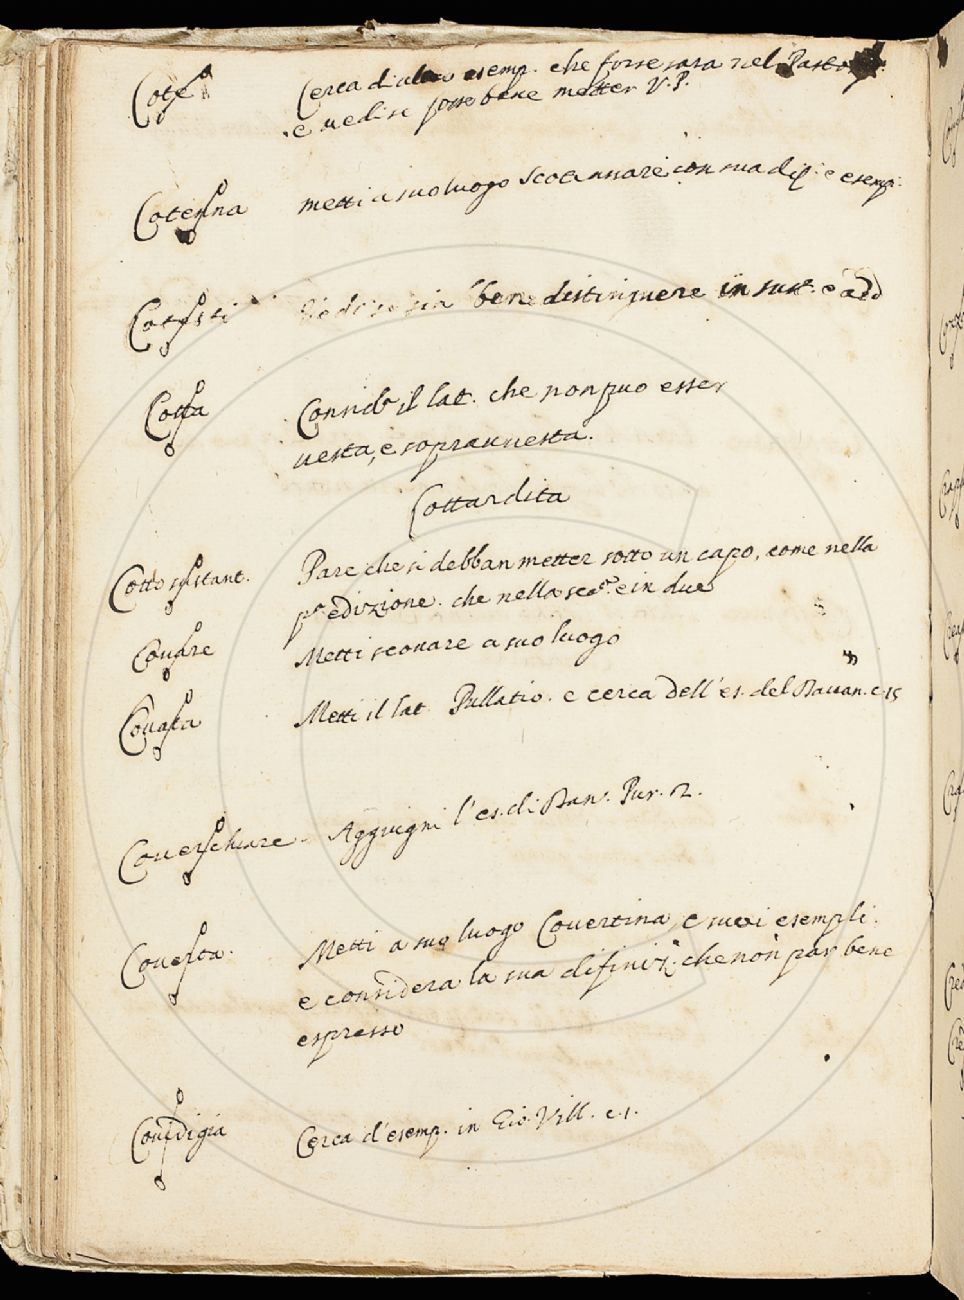 Cote Cerca di altro esemp. che forse sara nel Pastor
e vedi se fosse bene metter V.P.
Cotenna metti a suo luogo Scotennare con sua dif. e esemp.
bene distinguere in sust. e add
Cotta Consid.ª il lat. che non puo esser
vesta, e sopravvesta.
Cottardita
Cotto sustant. Pare che si debban metter sotto un capo, come nella
pª edizione. che nella sec.ª e in due
Covare Metti scovare a suo luogo
Covata Metti il lat. Pullatio. e cerca dell'es. del Davan. c. 15
Coverchiare Aggiugni l'es. di Dan. Pur. 2.
Coverta. Metti a suo luogo Covertina, e suoi esempli.
e considera la sua difiniz.ᵉ che non par bene
espresso
Covidigia Cerca d'esemp. in Gio. Vill. c. 1.